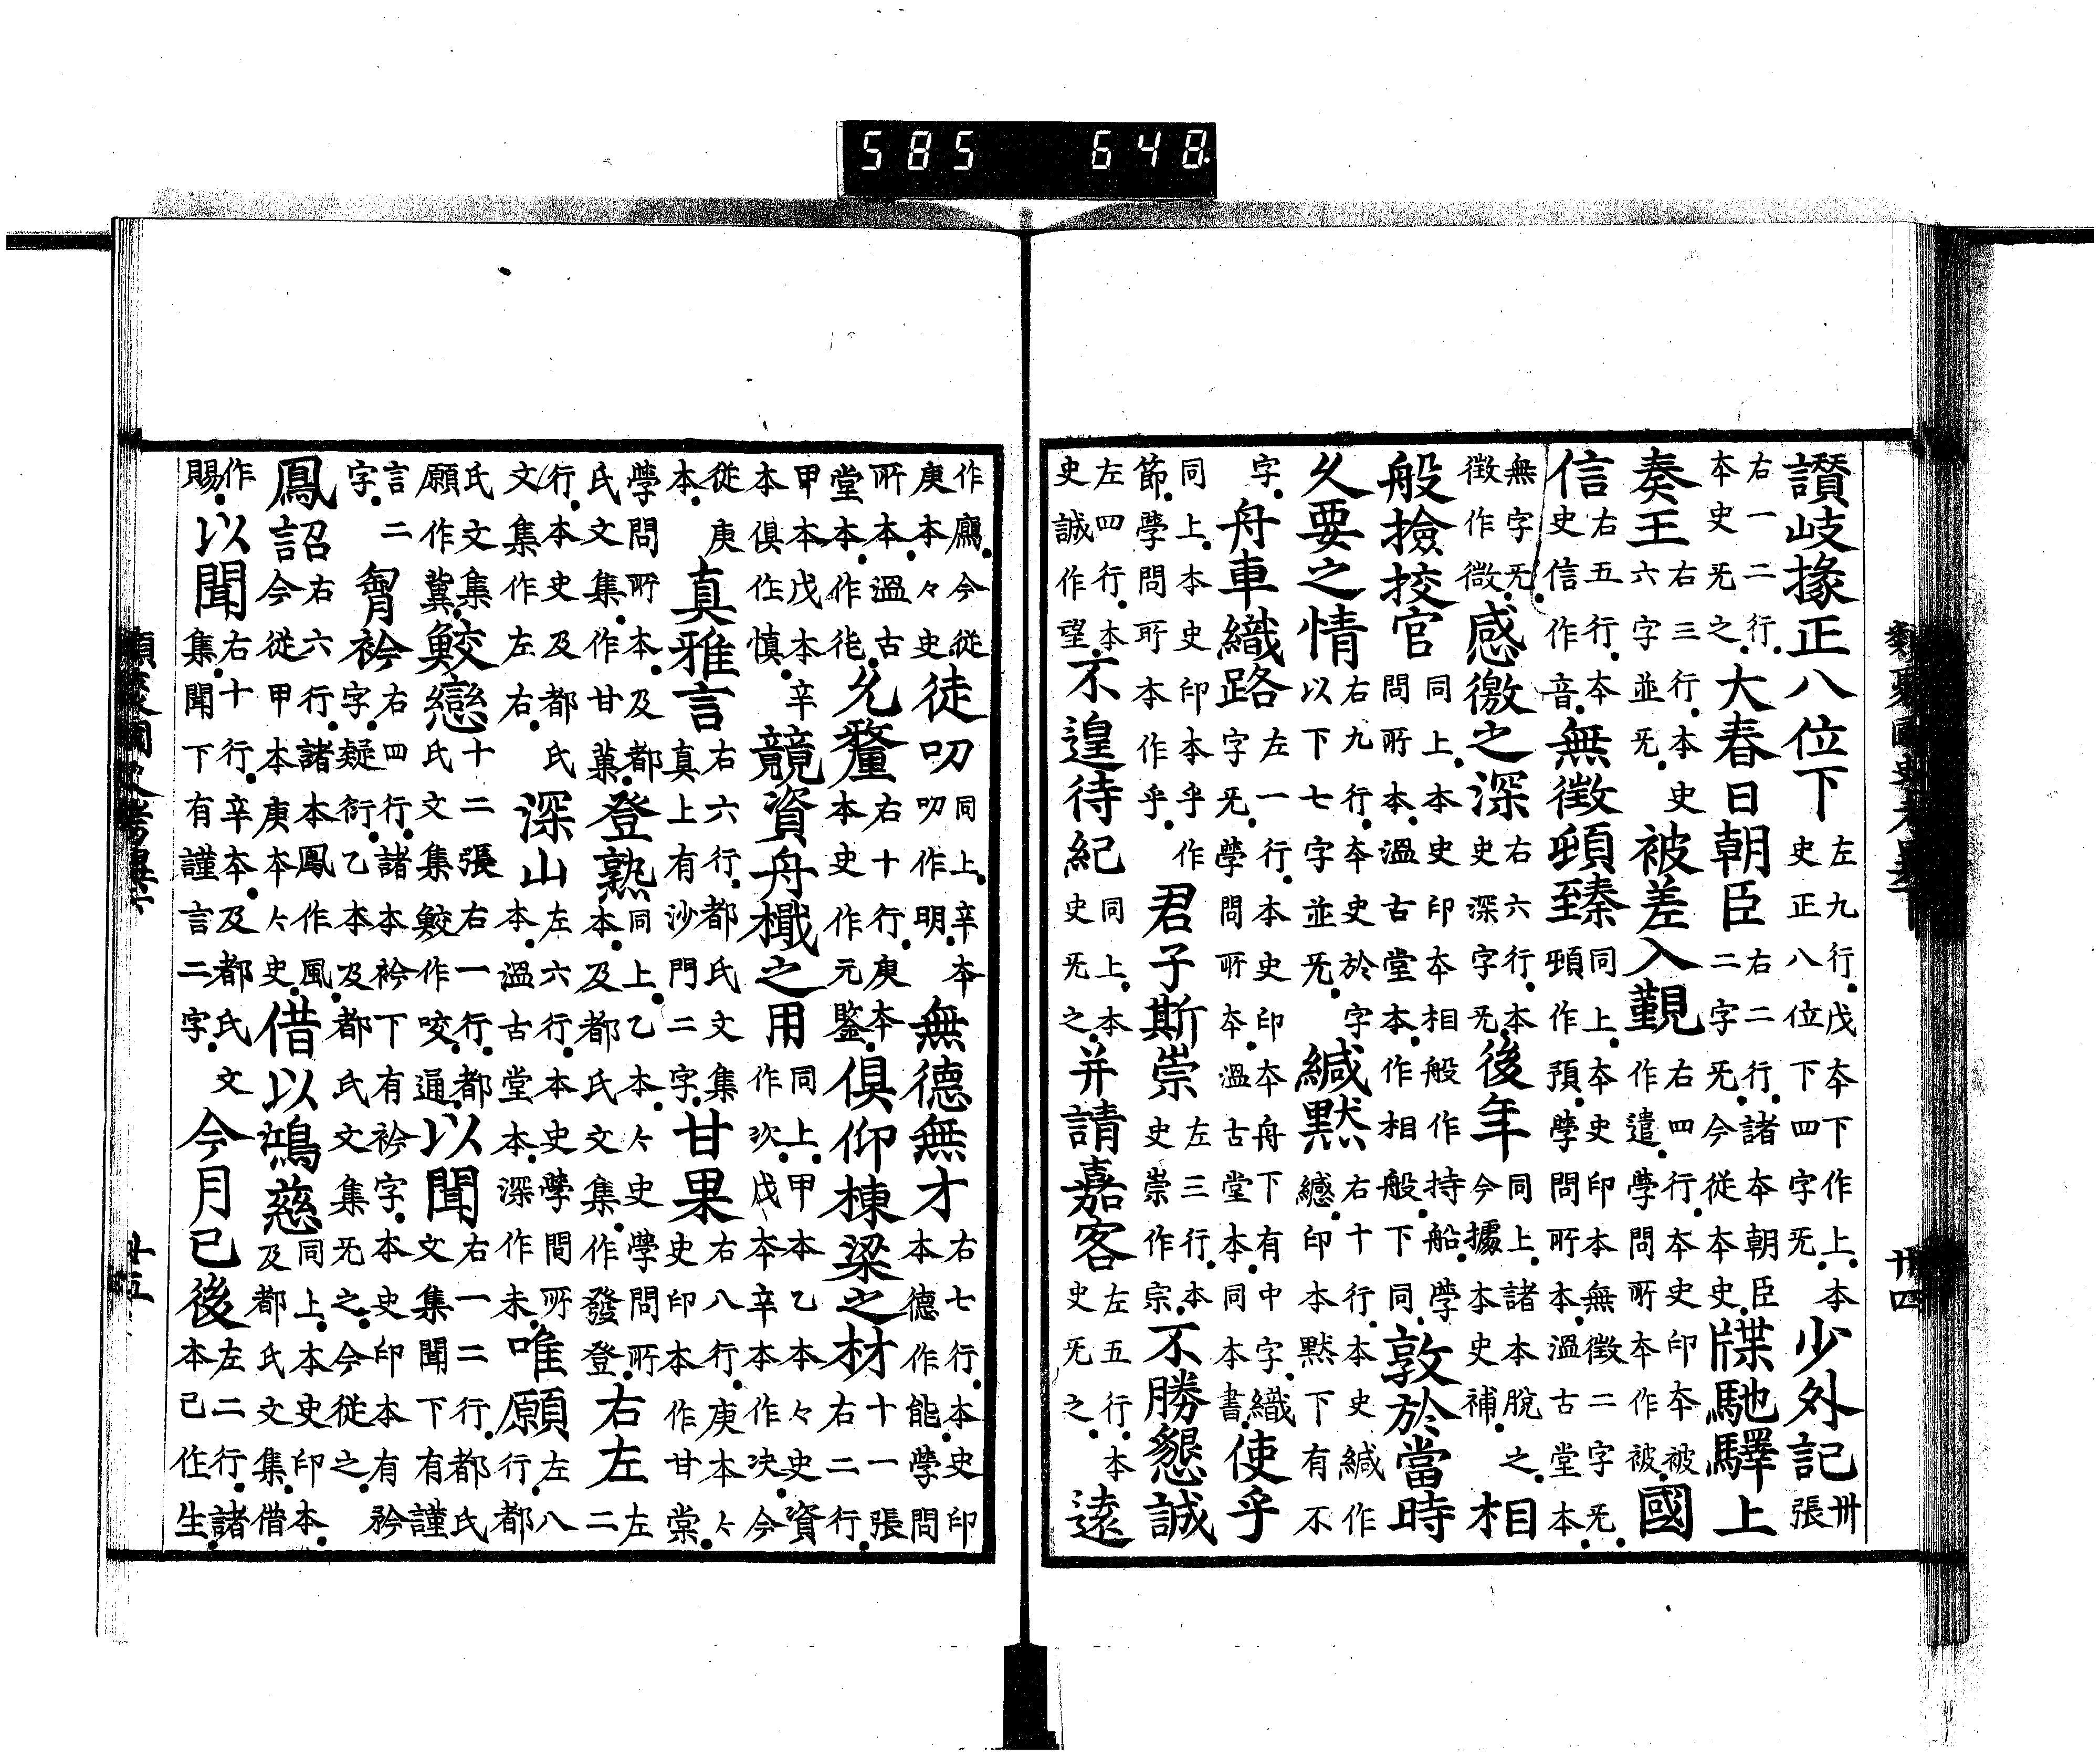 585 648
讃岐掾正八位下左九行戊本下作上本史正八位下四字旡少外記卅張
右一二行本史旡之大春日朝臣右二行諸本朝臣二字旡今從本史牒馳驛上
奏王右三行本史六字並旡被差入覲右四行本史印本被作遣學問所本作被國
信右五行本史信作音無徵頓臻同上本史印本無徵二字旡頓作預學問所本溫古堂本
無字旡徵作微感徵之深右六行本史深字旡後年同上諸本脫之今據本史補相
般撿挍官同上本史印本相般作持船學問所本溫古堂本作相般下同敦於當時
久要之情右九行本史於字以下七字並旡緘黙右十行本史緘作繊印本黙下有不
字舟車織路左一行本史印本舟下有中字織字旡學問所本溫古堂本同本書使乎
同上本史印本乎作節學問所本作乎君子斯崇左三行本史崇作宗不勝懇誠
左四行本史誠作望不遑待紀同上本史旡之并請嘉客左五行本史旡之遠
類聚國史考異六 卄四
作鷹今從庚本々史徒叨同上辛本叨作明無德無才右七行本史印本德作能學問
所本溫古堂本作徙允釐右十行庚本本史作元鑒俱仰棟梁之材十一張右二行
甲本戊本辛本俱作慎競資舟檝之用同上甲本乙本々史資作次戊本辛本作決今
從庚本真雅言右六行都氏文集真上有沙門二字甘果右八行庚本々史印本作甘棠
學問所本及都氏文集作甘菓登熟同上乙本々史學問所本及都氏文集作發登右左左二
行本史及都氏文集作左右深山左六行本史學問所本溫古堂本深作未唯願左八行都
氏文集願作冀鮫戀十二張右一行都氏文集鮫作咬通以聞右一二行都氏文集聞下有謹
言二字胷衿右四行諸本衿下有衿字本史印本有矜字疑衍乙本及都氏文集旡之今從之
鳳詔右六行諸本鳳作風今從甲本庚本々史借以鴻慈同上本史印本及都氏文集借
作賜以聞右十行辛本及都氏文集聞下有謹言二字今月已後左二行諸本已作生
類聚國史考異六 卄五